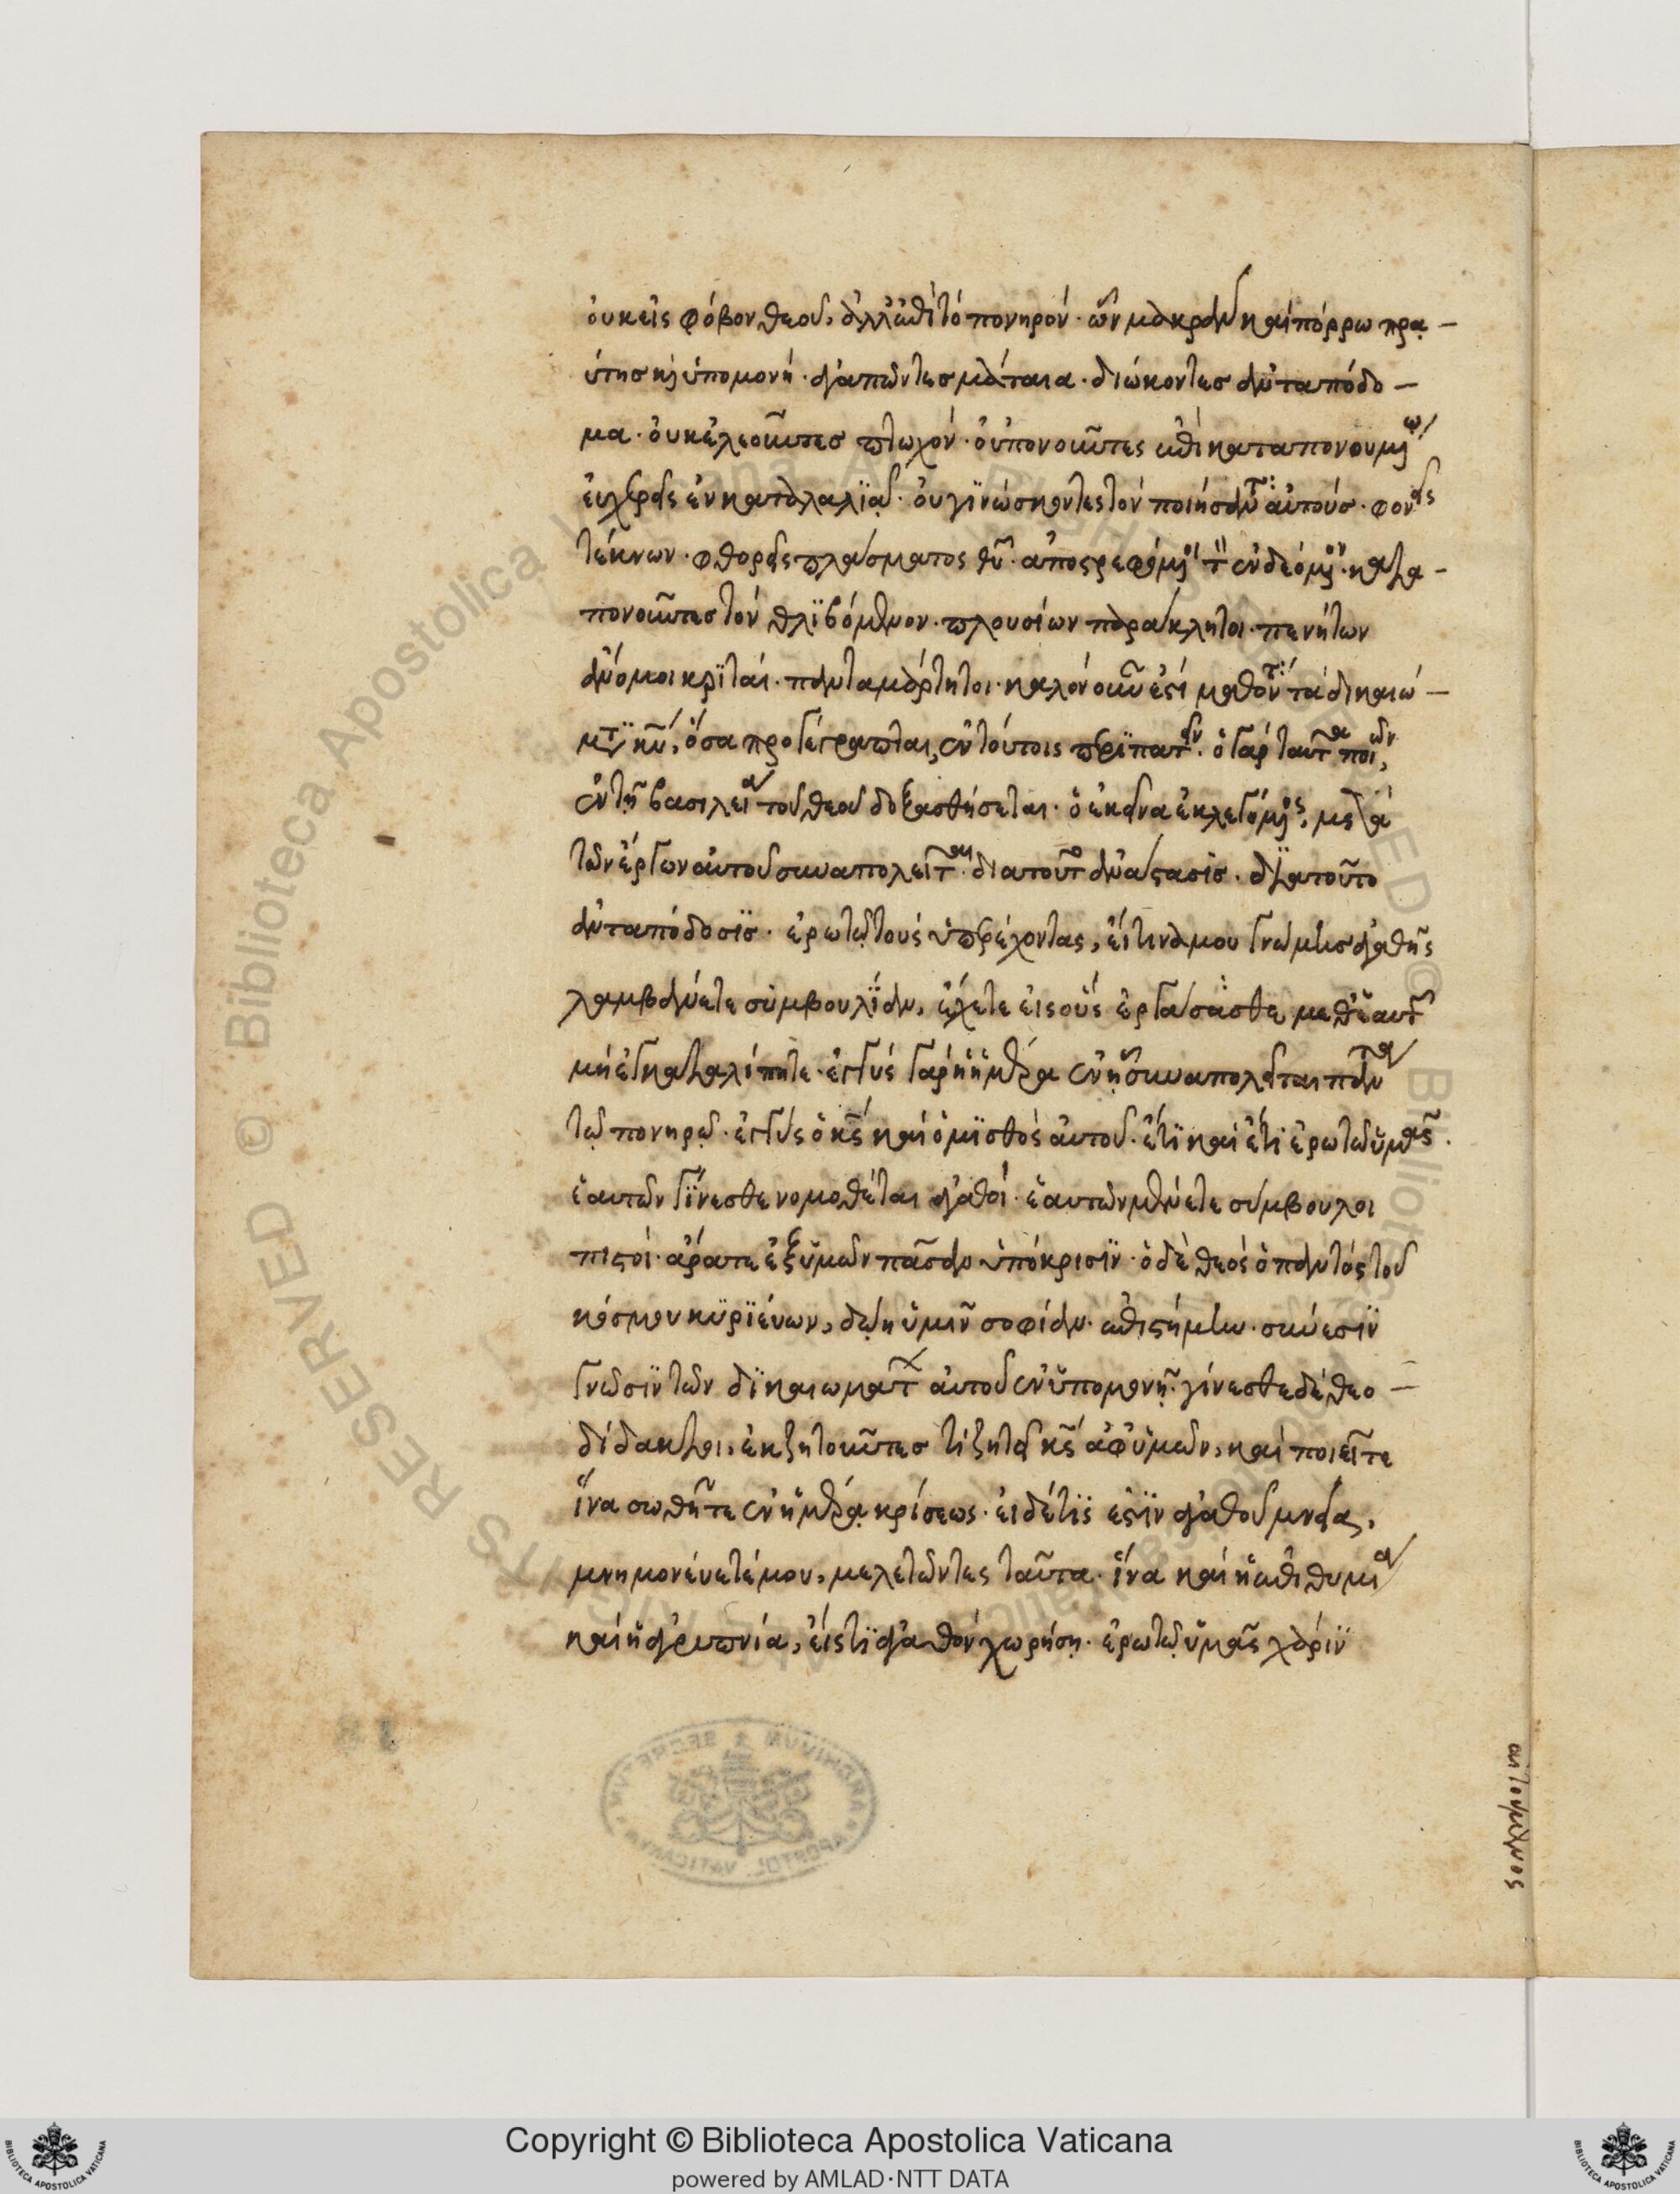 οὐκ εἰς φόβον θεοῦ, ἀλλ' ἐπὶ τὸ πονηρόν· ὧν μακρὰν καὶ πόρρω πρα-
ύτης καὶ ὑπομονή· ἀγαπῶντες μάταια· διώκοντες ἀνταπόδο-
μα· οὐκ ἐλεοῦντες πτωχόν· οὐ πονοῦντες ἐπὶ καταπονουμένῳ
εὐχερεῖς ἐν καταλαλϊᾷ· οὐ γϊνώσκοντες τὸν ποιήσαντα αὐτούς· φονεῖς
τέκνων· φθορεῖς πλάσματος θῦ· ἀποστρεφόμενοι τὸν ἐνδεόμενον· κατα-
πονοῦντες τὸν θλϊβόμενον· πλουσίων παράκλητοι· πενήτων
ἄνομοι κρϊταί· πανταμάρτητοι· καλὸν οὖν ἐστὶ μαθόντα τὰ δικαιώ-
ματα κῡ, ὅσα προγέγραπται, ἐν τούτοις περϊπατεῖν· ὁ γὰρ ταῦτα ποιῶν,
ἐν τῇ βασιλείᾳ τοῦ θεοῦ δοξασθήσεται· ὁ ἐκεῖνα ἐκλεγόμενος, μετὰ
τῶν ἔργων αὐτοῦ συναπολεῖται· διατοῦτο ἀνάστασις· διατοῦτο
ἀνταπόδοσϊς· ἐρωτῶ τοὺς ὑπερέχοντας, εἴ τινά μου γνώμης ἀγαθῆς
λαμβάνετε συμβουλΐαν, ἔχετε εἰς οὓς ἐργάσασθε μεθ' ἑαυτῶν
μὴ ἐγκαταλίπητε· ἐγγὺς γὰρ ἡ ἡμέρα ἐν ᾗ συναπολεῖται πάντα
τῷ πονηρῷ· ἐγγὺς ὁ κς̄ καὶ ὁ μϊσθὸς αὐτοῦ· ἔτϊ καὶ ἔτϊ ἐρωτῶ ὑμᾶς·
ἑαυτῶν γΐνεσθε νομοθέται ἀγαθοί· ἑαυτῶν μένετε σύμβουλοι
πιστοί· ἄρατε ἐξ ὑμῶν πᾶσαν ὑπόκρισϊν· ὁ δὲ θεὸς ὁ παντὸς τοῦ
κόσμου κϋρϊεύων, δῴη ὑμῖν σοφίαν· ἐπιστήμην· σύνεσϊν
γνῶσϊν τῶν δϊκαιωμάτων αὐτοῦ ἐν ὑπομονῇ· γίνεσθε δὲ θεο-
δίδακτοι, ἐκζητοῦντες τί ζητεῖ κς̄ ἀφ' ὑμῶν, καὶ ποιεῖτε
ἵνα σωθῆτε ἐν ἡμέρᾳ κρίσεως· εἰ δέ τϊς ἐστϊν ἀγαθοῦ μνεία,
μνημονεύετέ μου, μελετῶντες ταῦτα· ἵνα καὶ ἡ ἐπιθυμία
καὶ ἡ ἀγρυπνία, εἴς τϊ ἀγαθὸν χωρήσῃ· ἐρωτῶ ὑμᾶς χάρϊν
αἰτούμενος
ARCHIVUM SECRETUM APOSTOL. VATICANUM
© Biblioteca Apostolica Vaticana ALL RIGHTS RESERVED
Copyright © Biblioteca Apostolica Vaticana
powered by AMLAD·NTT DATA
BIBLIOTECA APOSTOLICA VATICANA
BIBLIOTECA APOSTOLICA VATICANA